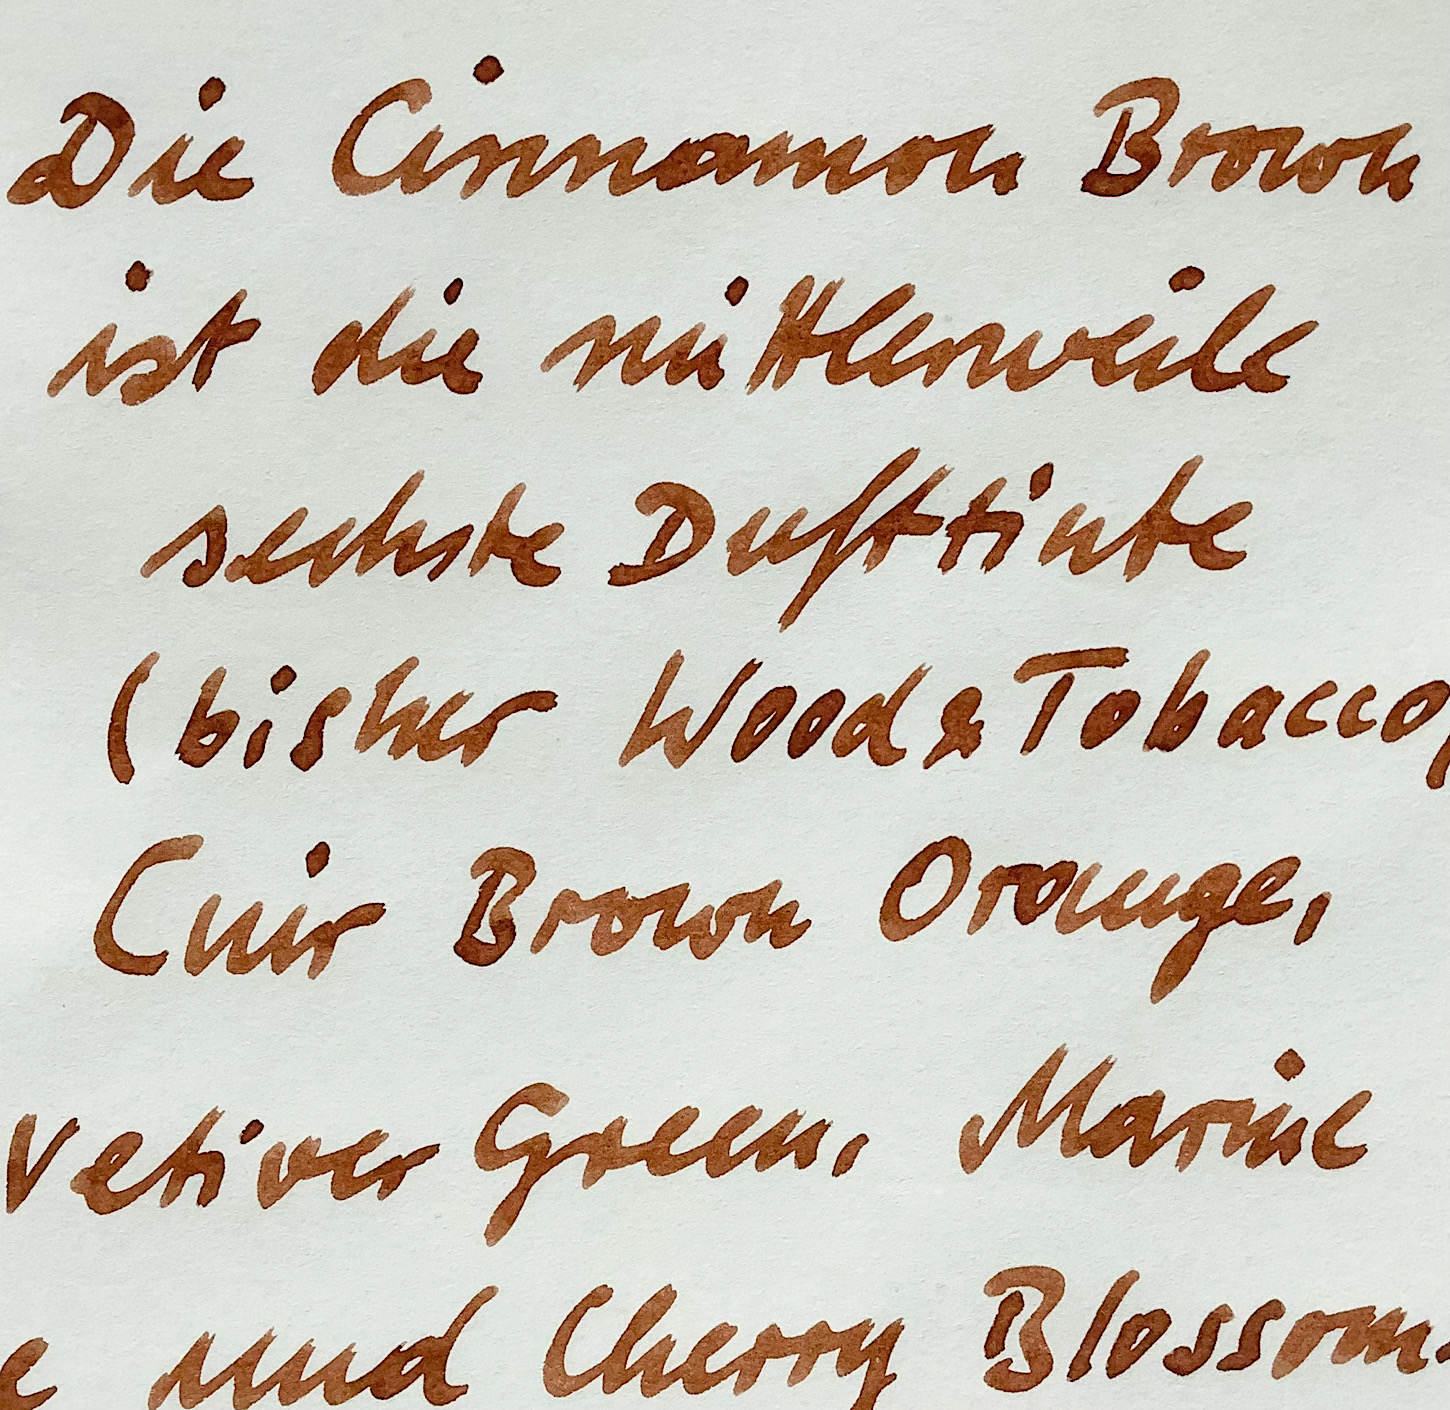 Die Cinnamon Brown
ist die mittlerweile
sechste Dufttinte
(bisher Wood&Tobacco,
Cuir Brown Orange,
Vetiver Green, Marine
e und Cherry Blossom.